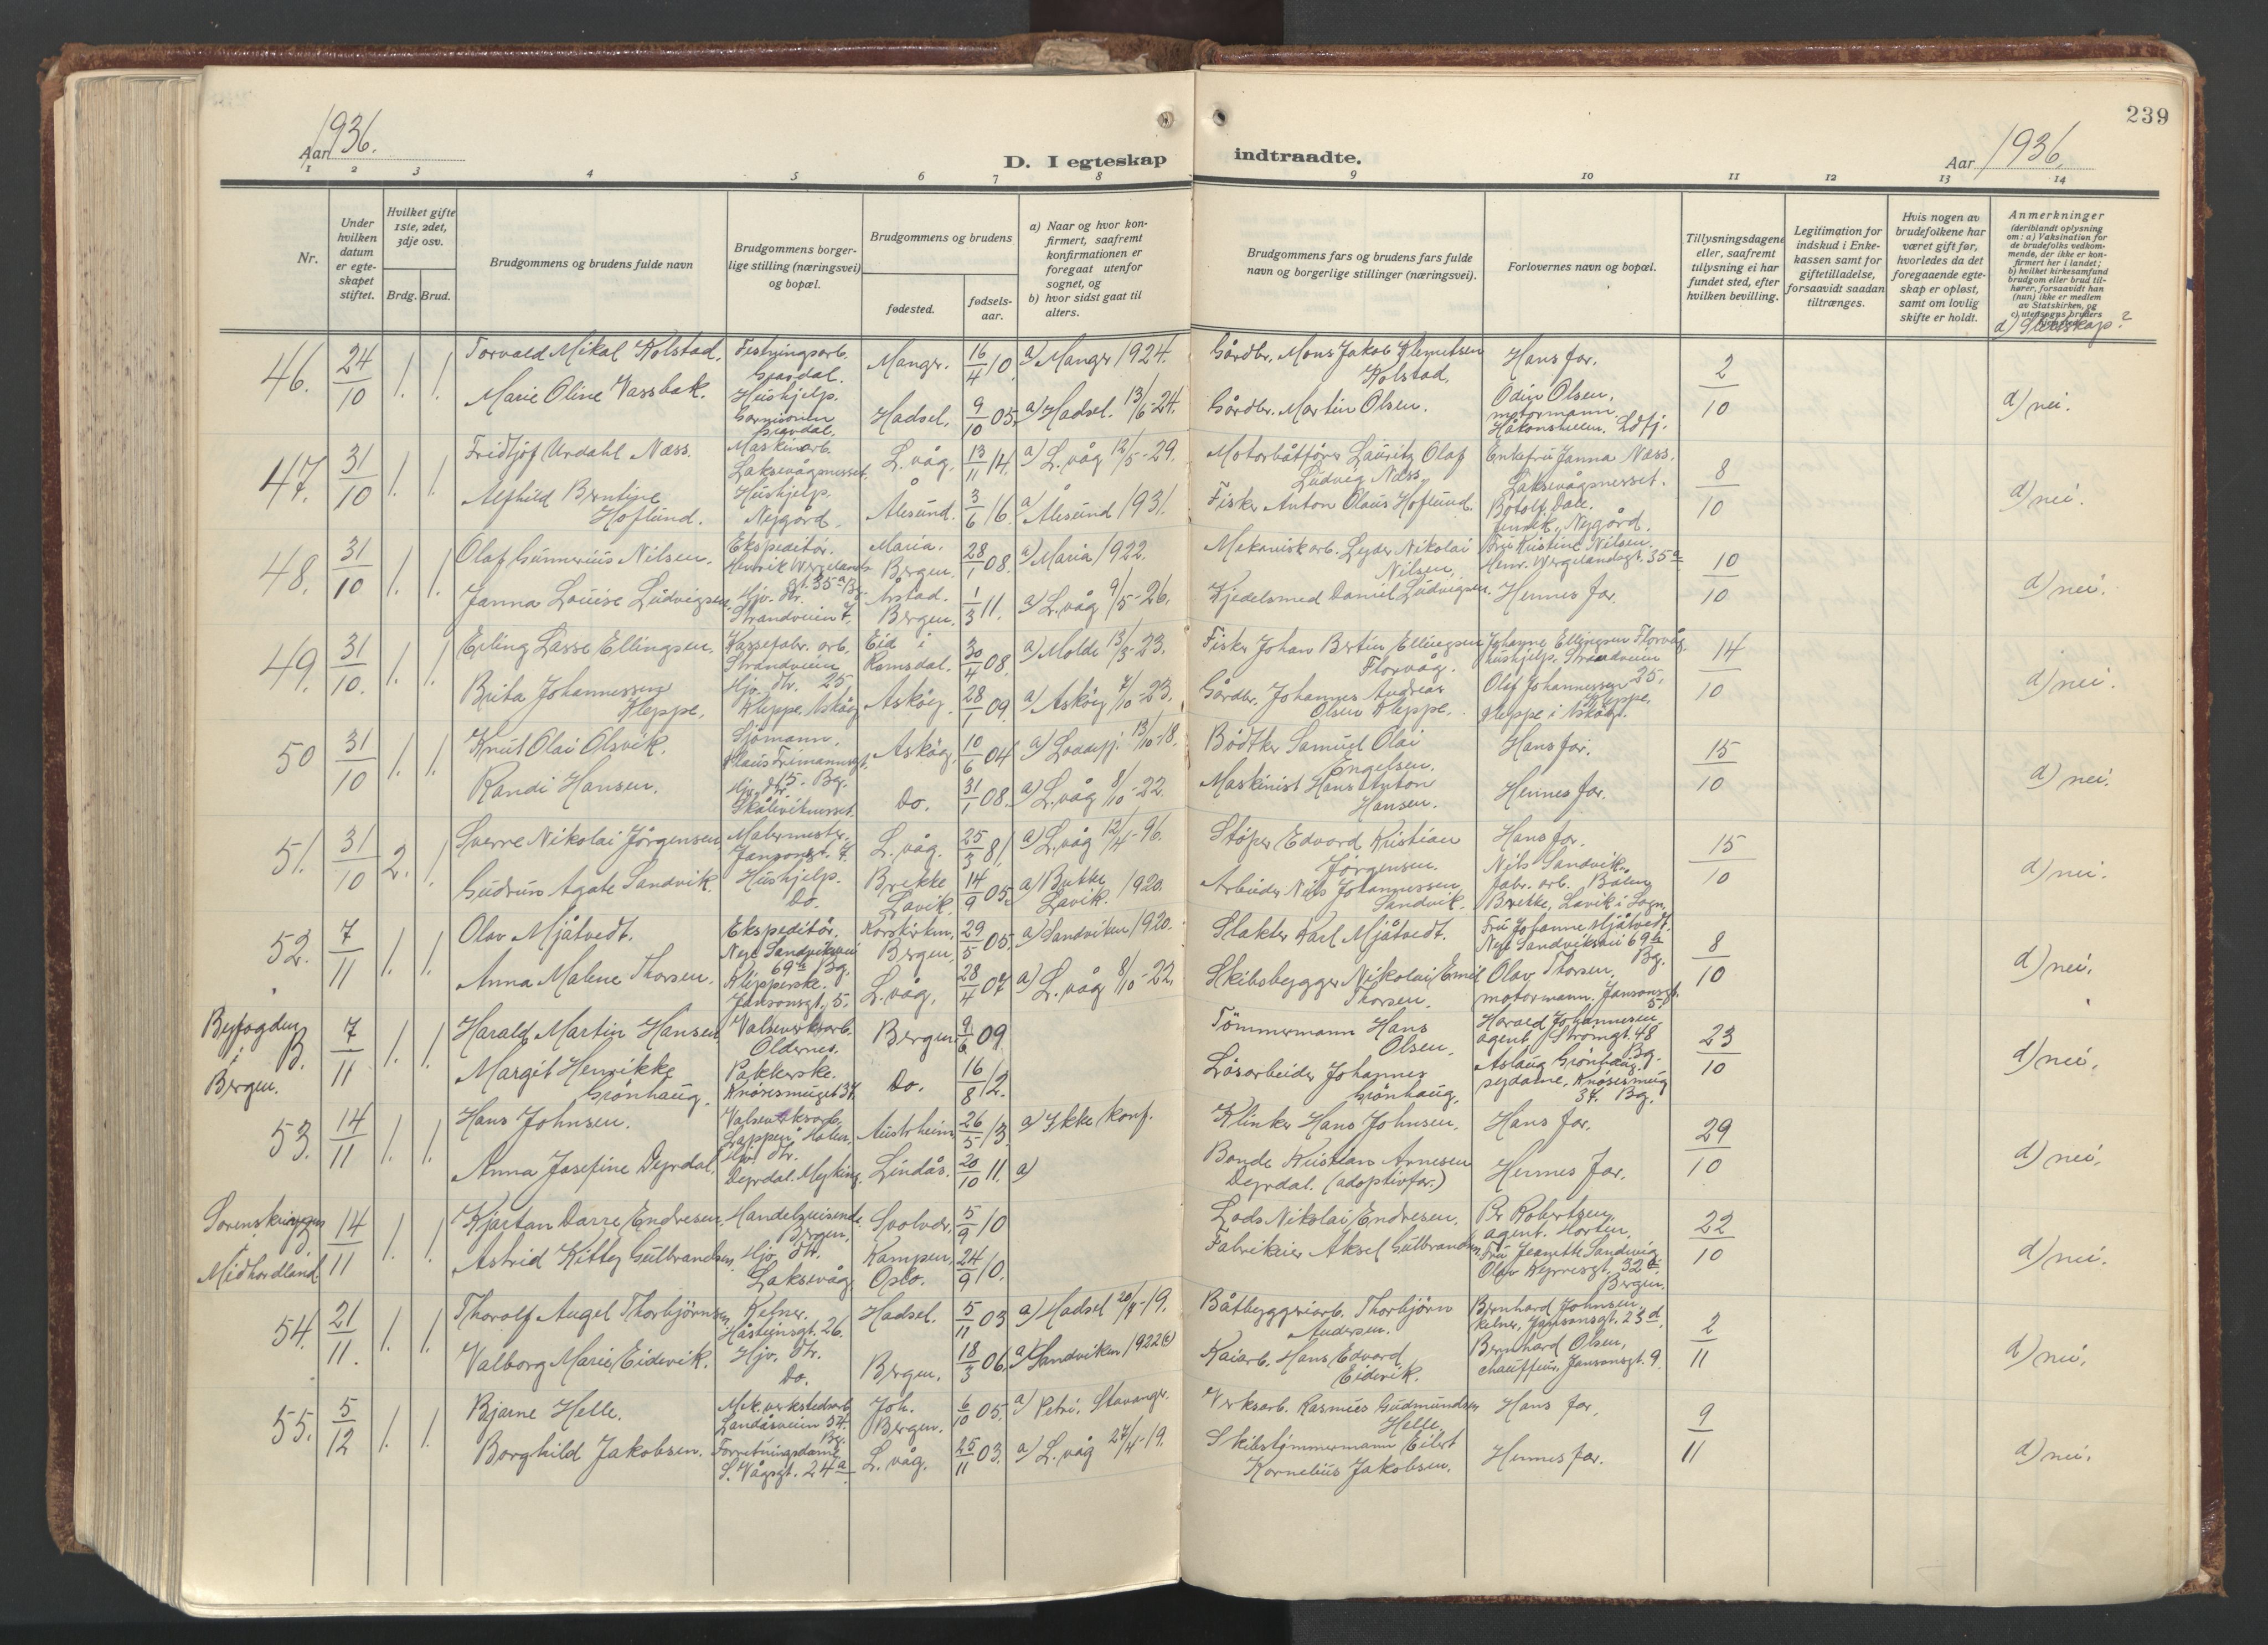 239
Aar 1936.
D. I egteskap indtraadte.
Aar 1936.
1 2 3 4 5 6 7 8 9 10 11 12 13 14
Nr.
Under hvilken datum er egteskapet stiftet.
Hvilket gifte 1ste, 2det, 3dje osv.
Brdg. Brud.
Brudgommens og brudens fulde navn
Brudgommens borgerlige stilling (næringsvei) og bopæl.
Brudgommens og brudens
fødested.
fødselsaar.
a) Naar og hvor konfirmert, saafremt konfirmationen er foregaat utenfor sognet, og
b) hvor sidst gaat til alters.
Brudgommens fars og brudens fars fulde navn og borgerlige stillinger (næringsvei).
Forlovernes navn og bopæl.
Tillysningsdagene eller, saafremt tillysning ei har fundet sted, efter hvilken bevilling.
Legitimation for indskud i Enkekassen samt for giftetilladelse, forsaavidt saadan tiltrænges.
Hvis nogen av brudefolkene har været gift før, hvorledes da det foregaaende egteskap er opløst, samt om lovlig skifte er holdt.
Anmerkninger
(deriblandt oplysning om: a) Vaksination for de brudefolks vedkommende, der ikke er konfirmert her i landet;
b) hvilket kirkesamfund brudgom eller brud tilhører, forsaavidt han (hun) ikke er medlem av Statskirken, og
c) utensogns bruders
d) Slektskap?
46. 24/10 1. 1. Torvald Mikal Kolstad. Festningsarb. Gravdal. Manger. 16/4 10. a) Manger 1924. Gårdbr. Mons Jakob Klemetsen Kolstad. Hans far. 2/10
Marie Oline Vassbak. Hushjelp. Garnisonen Gravdal. Hadsel. 9/10 05. a) Hadsel. 13/6-24. Gårdbr. Martin Olsen. Odin Olsen, motormann. Håkonshellen. Ldfj. d) nei.
47. 31/10 1. 1. Fridtjof Urdahl Næss. Maskinarb. Laksevågnesset. L.våg. 13/11 14. a) L.våg 12/5-29. Motorbåtfører Lauritz Olaf Ludvig Næss. Enkefru Janna Næss. Laksevågnesset. 8/10
Alfhild Berntine Hoflund. Hushjelp. Nygård. Ålesund. 3/6 16. a) Ålesund 1931. Fisker Anton Olaus Hoflund. Botolf Dale. Nygård. d) nei.
48. 31/10 1. 1. Olaf Gunnerius Nilsen. Ekspeditør. Henrik Wergelands gt. 35a Bg. Maria. Bergen. 28/1 08. a) Maria 1922. Mekaniskarb. Lyder Nikolai Nilsen. Fru Kristine Nilsen. Henr. Wergelandsgt. 35a 10/10
Janna Louise Ludvigsen. Hjv. dtr. Strandveien 7. Årstad. Bergen. 1/3 11. a) L.våg 9/5-26. Kjedelsmed Daniel Ludvigsen. Hennes far. d) nei.
49. 31/10. 1. 1. Erling Lasse Ellingsen. Kassefabr. arb. Strandveien 25 Eid i Romsdal. 30/4 08. a) Molde 13/5-23. Fisker Johan Bertin Ellingsen Florvåg. Johanne Ellingsen Florvåg. hushjelp. Strandveien 25. 14/10
Brita Johannessen Kleppe. Hjv. dtr. Kleppe. Askøy. Askøy. 28/1 09. a) Askøy 7/10-23. Gårdbr. Johannes Andreas Olsen Kleppe. Olaf Johannessen Kleppe. Kleppe i Askøy. d) nei.
50 31/10 1. 1. Knut Olai Olsvik. Sjømann. Klaus Frimannsgt. 15. Bg. Askøy. 10/6 04. a) Loddefj. 13/10-18. Bødtker Samuel Olai Engelsen. Hans far. 15/10
Randi Hansen. Hjv. dtr. Skåleviknesset. Do. 31/1 08. a) L.våg 8/10-22. Maskinist Hans Anton Hansen. Hennes far. d) nei.
51. 31/10 2. 1. Sverre Nikolai Jørgensen. Malermester. Jansonsgt. 7. L.våg. 25/3 81. a) L.våg 12/4-96. Støper Edvard Kristian Jørgensen. Hans far. 15/10
Gudrun Agate Sandvik. Hushjelp. Do. Brekke Lavik. 14/9 05. a) Brekke Lavik. 1920. Arbeider Nils Johannessen Sandvik. Nils Sandvik. fabr. arb. Brekke, Lavik i Sogn. d) nei.
52. 7/11 1. 1. Olav Mjåtvedt. Ekspeditør. Nye Sandviksvei 69b Bg. Korskirken. Bergen. 29/5 05. a) Sandviken 1920. Slakter Karl Mjåtvedt. Fru Johanne Mjåtvedt. Nye Sandviksvei 69b Bg. 8/10
Anna Malene Thorsen. Klipperske. Jansonsgt. 5. L.våg. 28/4 07. a) L.våg 8/10-22. Skibsbygger Nikolai Emil Thorsen. Olav Thorsen, motormann. Jansonsgt. 5. d) nei.
Byfogden i Bergen. B. 7/11 1. 1. Harald Martin Hansen Valseverksarb. Oldernes. Bergen. 9/6 09. Tømmermann Hans Olsen. Harald Johannesen, agent, Strømgt. 48 Bg. 23/10
Margit Henrikke Grønhaug. Pakkerske. Knøsesmuget 37. Do. 16/8 12. Låsarbeider Johannes Grønhaug. Aslaug Grønhaug, sydame, Knøsesmug 37. Bg. d) nei.
53. 14/11 1. 1. Hans Johnsen. Valseverksarb. Austrheim. 26/5 13. a) Ikke konf. Klinker Hans Johnsen. Hans far. 29/10
Anna Josefine Dyrdal. Hjv. dtr. Dyrdal. Myking. Lindås. 20/10 11. a) Bonde Kristian Arnesen Dyrdal. (adoptivfar.) Hennes far. d) nei.
Sorenskriveren Midhordland B. 14/11 1. 1. Kjartan Darre Endresen. Handelsreisende. Bergen. Svolvær. 5/9 10 Lods Nikolai Endresen. Per Robertsen, agent. Horten. 22/10
Astrid Kitty Gulbrandsen. Hjv. dtr. Laksevåg Kampen, Oslo. 24/9 10. Fabrikeier Aksel Gulbrandsen. Fru Jeanette Sandvig, Olav Kyrresgt. 32 Bergen. d) nei.
54. 21/11. 1. 1. Thorolf Angel Thorbjørnsen. Kelner. Håsteinsgt. 26. Hadsel. 5/11 03 a) Hadsel 20/4-19. Båtbyggeriarb. Thorbjørn Andersen. Bernhard Johnsen, kelner, Jansonsgt. 23d. 2/11
Valborg Marie Eidevik. Hjv. dtr. Do. Bergen. 18/3 06. a) Sandviken 1922 (?) Kaiarb. Hans Edvard Eidevik. Bernhard Olsen, chauffeur, Jansonsgt. 9. d) nei.
55. 5/12 1. 1. Bjarne Helle. Mek. verkstedsarb. Landåsveien 34. Bg. Joh. Bergen. 6/10 05. a) Petri, Stavanger. Verksarb. Rasmus Gudmundsen Helle. Hans far. 9/11
Borghild Jakobsen. Forretningsdame. S. Vågsgt. 24a. L.våg. 25/11 03. a) L.våg 27/4-19. Skibstømmermann Eilert Kornelius Jakobsen. Hennes far. d) nei.